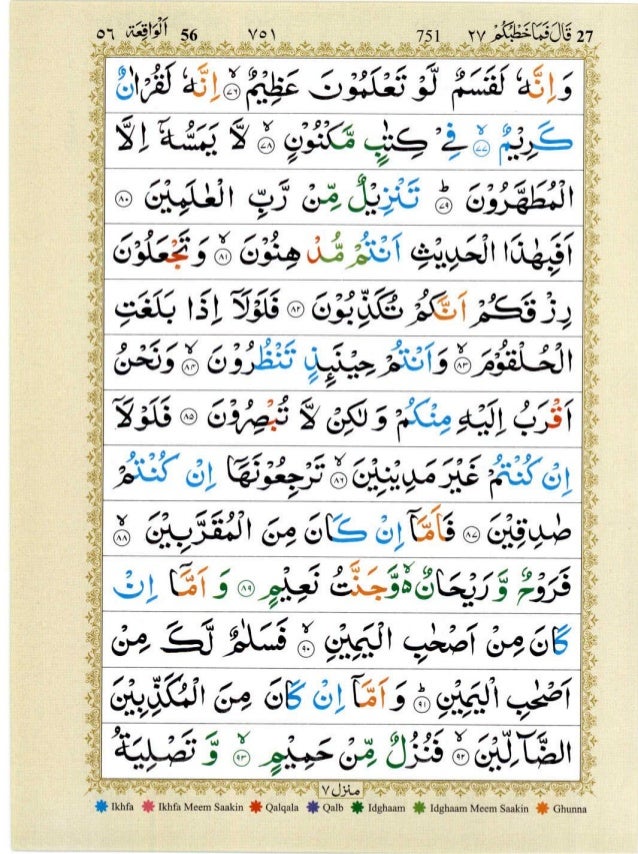 ٥٦ اَلْوَاقِعَة 56 ٧٥١ 751 قَالَ فَمَا خَطْبُكُمْ ٢٧ 27
وَاِنَّهٗ لَقَسَمٌ لَّوْ تَعْلَمُوْنَ عَظِيْمٌ ۙ‏﴿٧٦﴾ اِنَّهٗ لَقُرْاٰنٌ
كَرِيْمٌ ۙ‏﴿٧٧﴾ فِىْ كِتٰبٍ مَّكْنُوْنٍ ۙ‏﴿٧٨﴾ لَّا يَمَسُّهٗۤ اِلَّا
الْمُطَهَّرُوْنَ ؕ‏﴿٧٩﴾ تَنْزِيْلٌ مِّنْ رَّبِّ الْعٰلَمِيْنَ ﴿٨٠﴾
اَفَبِهٰذَا الْحَدِيْثِ اَنْتُمْ مُّدْهِنُوْنَ ۙ‏﴿٨١﴾ وَتَجْعَلُوْنَ
رِزْقَكُمْ اَنَّكُمْ تُكَذِّبُوْنَ ﴿٨٢﴾ فَلَوْلَاۤ اِذَا بَلَغَتِ
الْحُلْقُوْمَ ۙ‏﴿٨٣﴾ وَاَنْتُمْ حِيْنَئِذٍ تَنْظُرُوْنَ ۙ‏﴿٨٤﴾ وَنَحْنُ
اَقْرَبُ اِلَيْهِ مِنْكُمْ وَلٰكِنْ لَّا تُبْصِرُوْنَ ﴿٨٥﴾ فَلَوْلَاۤ
اِنْ كُنْتُمْ غَيْرَ مَدِيْنِيْنَ ۙ‏﴿٨٦﴾ تَرْجِعُوْنَهَاۤ اِنْ كُنْتُمْ
صٰدِقِيْنَ ﴿٨٧﴾ فَاَمَّاۤ اِنْ كَانَ مِنَ الْمُقَرَّبِيْنَ ۙ‏﴿٨٨﴾
فَرَوْحٌ وَّرَيْحَانٌ ۙ۬ وَّجَنَّتُ نَعِيْمٍ ﴿٨٩﴾ وَاَمَّاۤ اِنْ
كَانَ مِنْ اَصْحٰبِ الْيَمِيْنِ ۙ‏﴿٩٠﴾ فَسَلٰمٌ لَّكَ مِنْ
اَصْحٰبِ الْيَمِيْنِ ؕ‏﴿٩١﴾ وَاَمَّاۤ اِنْ كَانَ مِنَ الْمُكَذِّبِيْنَ
الضَّآلِّيْنَ ۙ‏﴿٩٢﴾ فَنُزُلٌ مِّنْ حَمِيْمٍ ۙ‏﴿٩٣﴾ وَّتَصْلِيَةُ
منزل ٧
Ikhfa Ikhfa Meem Saakin Qalqala Qalb Idghaam Idghaam Meem Saakin Ghunna